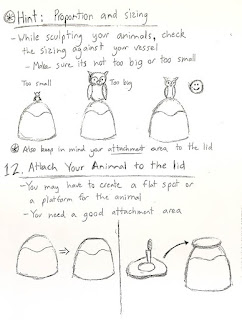 Hint: Proportion and sizing
- While sculpting your animals, check
the sizing against your vessel
- Make sure its not too big or too small
Too small
Too big
Also keep in mind your attachment area to the lid
12. Attach Your Animal to the lid
- You may have to create a flat spot or
a platform for the animal
- You need a good attachment area